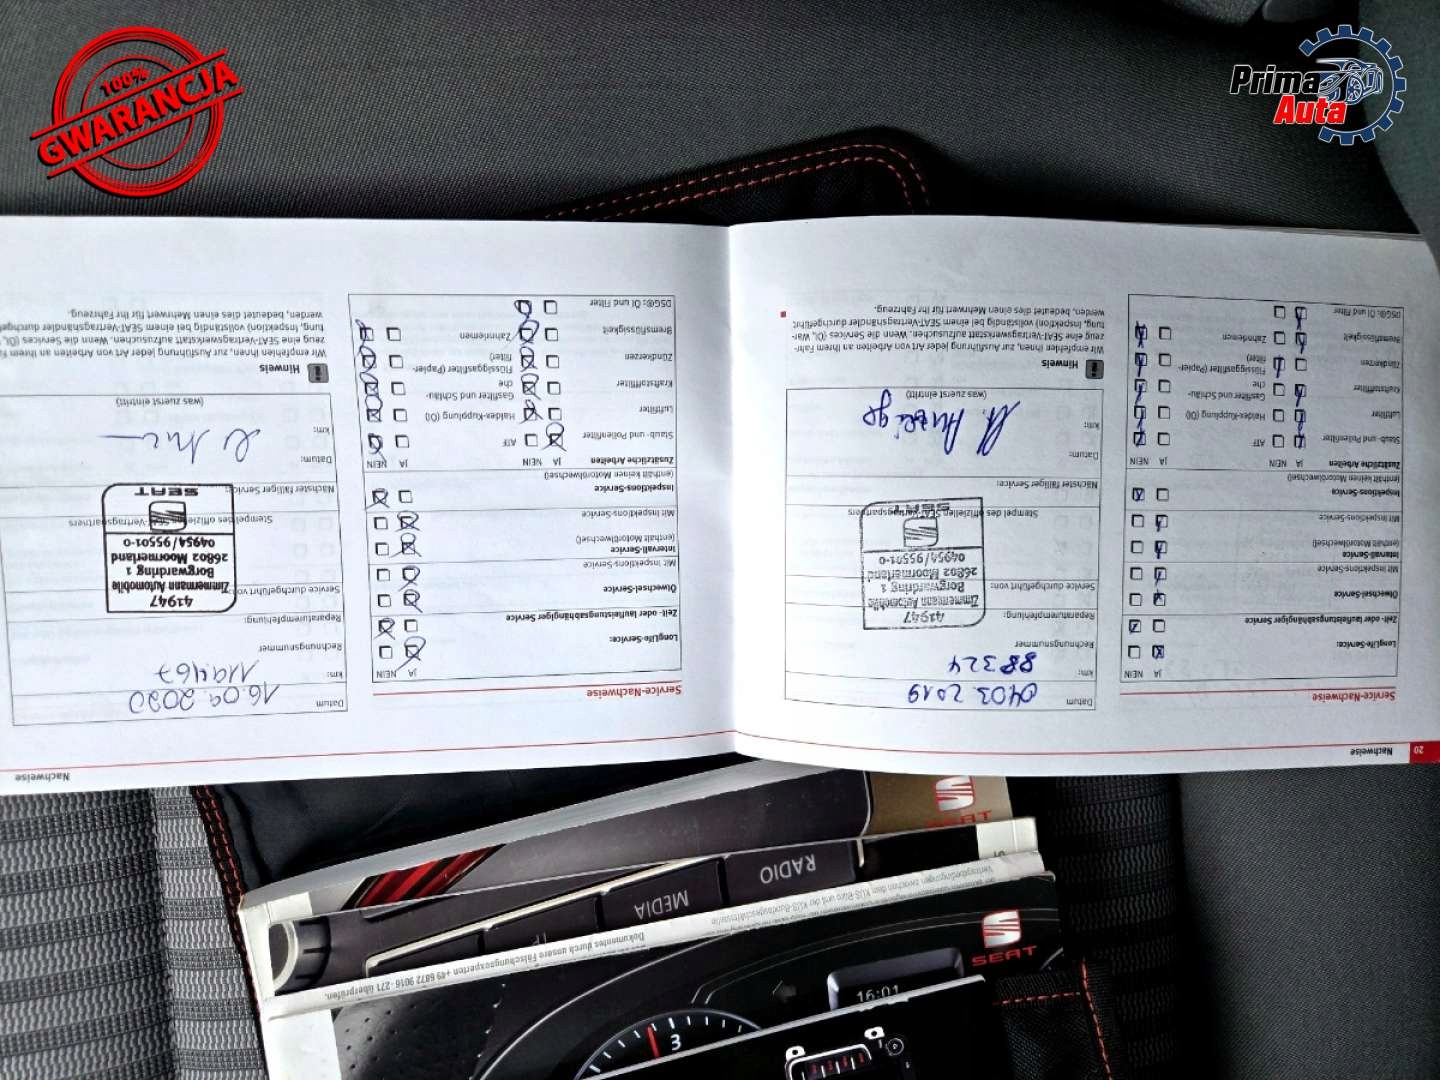 100%
GWARANCJA
Prima
Auta
20
Nachweise
Service-Nachweise
JA NEIN
LongLife-Service:
Zeit- oder laufleistungsabhängiger Service
Ölwechsel-Service
Mit Inspektions-Service
Intervall-Service
(enthält Motorölwechsel)
Mit Inspektions-Service
Inspektions-Service
(enthält keinen Motorölwechsel)
Zusätzliche Arbeiten
JA NEIN
JA NEIN
Staub- und Pollenfilter
ATF
Luftfilter
Haldex-Kupplung (Öl)
Kraftstofffilter
Gasfilter und Schläu-
che
Zündkerzen
Flüssiggasfilter (Papier-
filter)
Bremsflüssigkeit
Zahnriemen
DSG®: Öl und Filter
Datum
04.03.2019
km:
88324
Rechnungsnummer
Reparaturempfehlung:
Service durchgeführt von:
41947
Zimmermann Automobile
Borgwardring 1
26802 Moormerland
04954/95501-0
SEAT
Stempel des offiziellen SEAT-Vertragspartners
Nächster fälliger Service:
Datum:
km:
(was zuerst eintritt)
Hinweis
Wir empfehlen Ihnen, zur Ausführung jeder Art von Arbeiten an Ihrem Fahr-
zeug eine SEAT-Vertragswerkstatt aufzusuchen. Wenn die Services (Öl, War-
tung, Inspektion) vollständig bei einem SEAT-Vertragshändler durchgeführt
werden, bedeutet dies einen Mehrwert für Ihr Fahrzeug.
Nachweise
Service-Nachweise
JA NEIN
LongLife-Service:
Zeit- oder laufleistungsabhängiger Service
Ölwechsel-Service
Mit Inspektions-Service
Intervall-Service
(enthält Motorölwechsel)
Mit Inspektions-Service
Inspektions-Service
(enthält keinen Motorölwechsel)
Zusätzliche Arbeiten
JA NEIN
JA NEIN
Staub- und Pollenfilter
ATF
Luftfilter
Haldex-Kupplung (Öl)
Kraftstofffilter
Gasfilter und Schläu-
che
Zündkerzen
Flüssiggasfilter (Papier-
filter)
Bremsflüssigkeit
Zahnriemen
DSG®: Öl und Filter
Datum
16.09.2020
km:
119467
Rechnungsnummer
Reparaturempfehlung:
Service durchgeführt von:
41947
Zimmermann Automobile
Borgwardring 1
26802 Moormerland
04954/95501-0
SEAT
Stempel des offiziellen SEAT-Vertragspartners
Nächster fälliger Service:
Datum:
km:
(was zuerst eintritt)
Hinweis
Wir empfehlen Ihnen, zur Ausführung jeder Art von Arbeiten an Ihrem
zeug eine SEAT-Vertragswerkstatt aufzusuchen. Wenn die Services (Öl,
tung, Inspektion) vollständig bei einem SEAT-Vertragshändler
werden, bedeutet dies einen Mehrwert für Ihr Fahrzeug.
SEAT
RADIO
MEDIA
Dokumentes durch unsere Fälschungsexperten +49 6872 9016-271 überprüfen.
SEAT
16:01
3